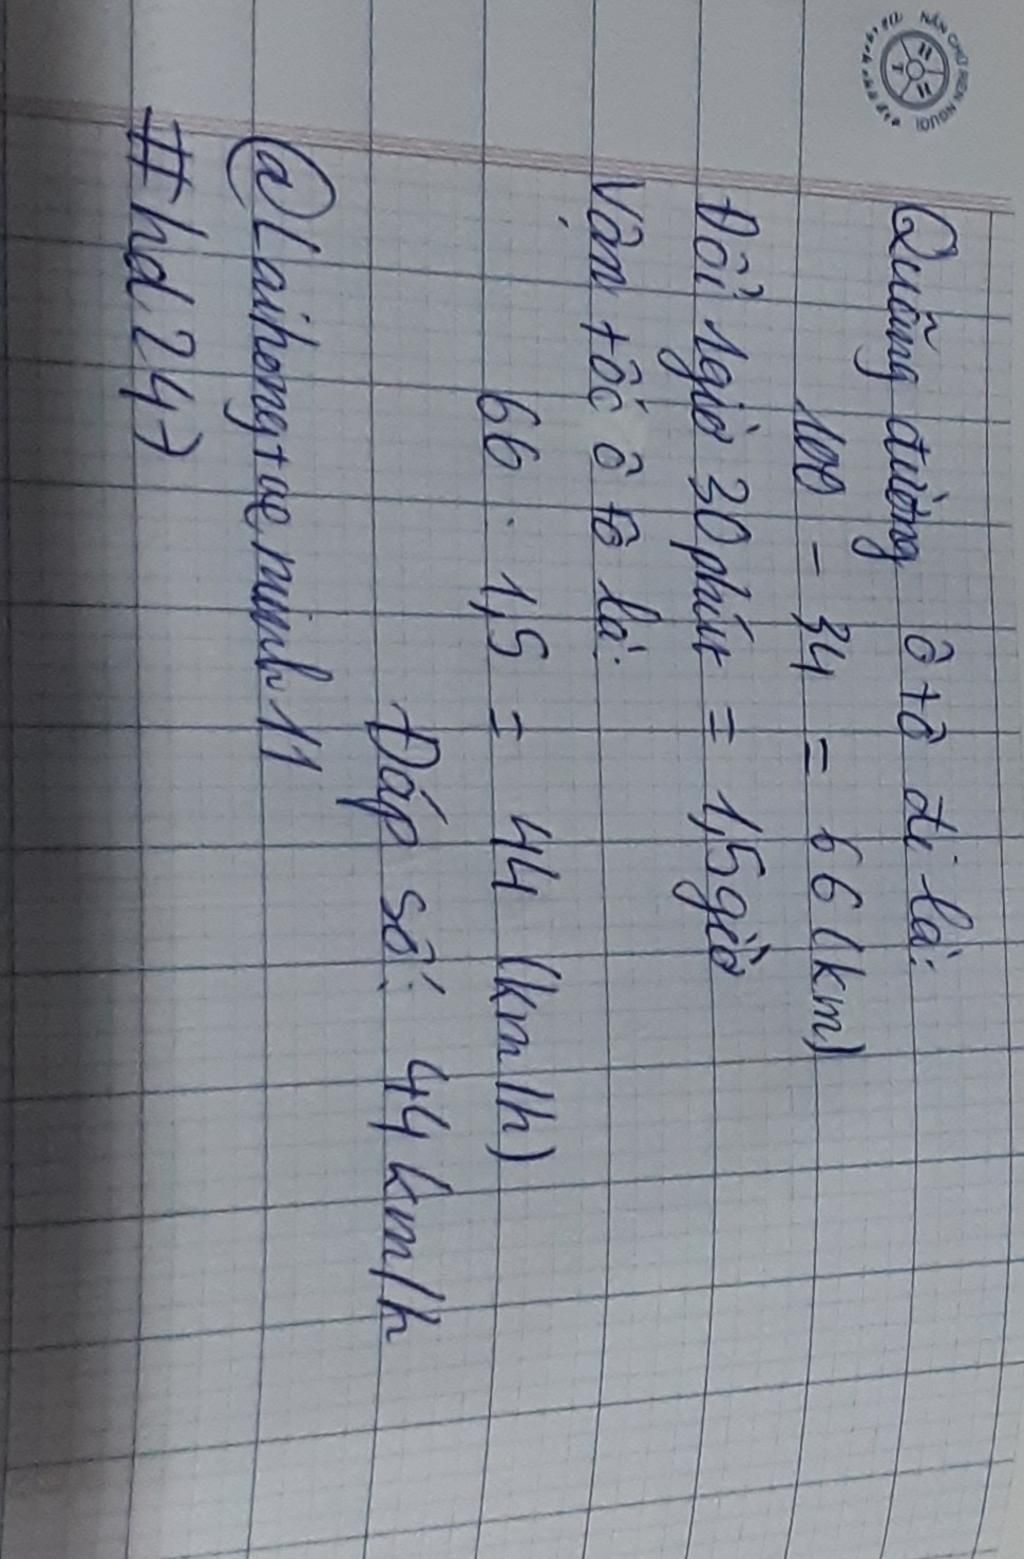 Quãng đường ô tô đi là:
100 - 34 = 66 (km)
Đổi 1giờ 30 phút = 1,5giờ
Vận tốc ô tô là:
66 : 1,5 = 44 (km/h)
Đáp số: 44 km/h
@Laihongtueminh11
#hd247
NẮN CHỮ RÈN NGƯỜI